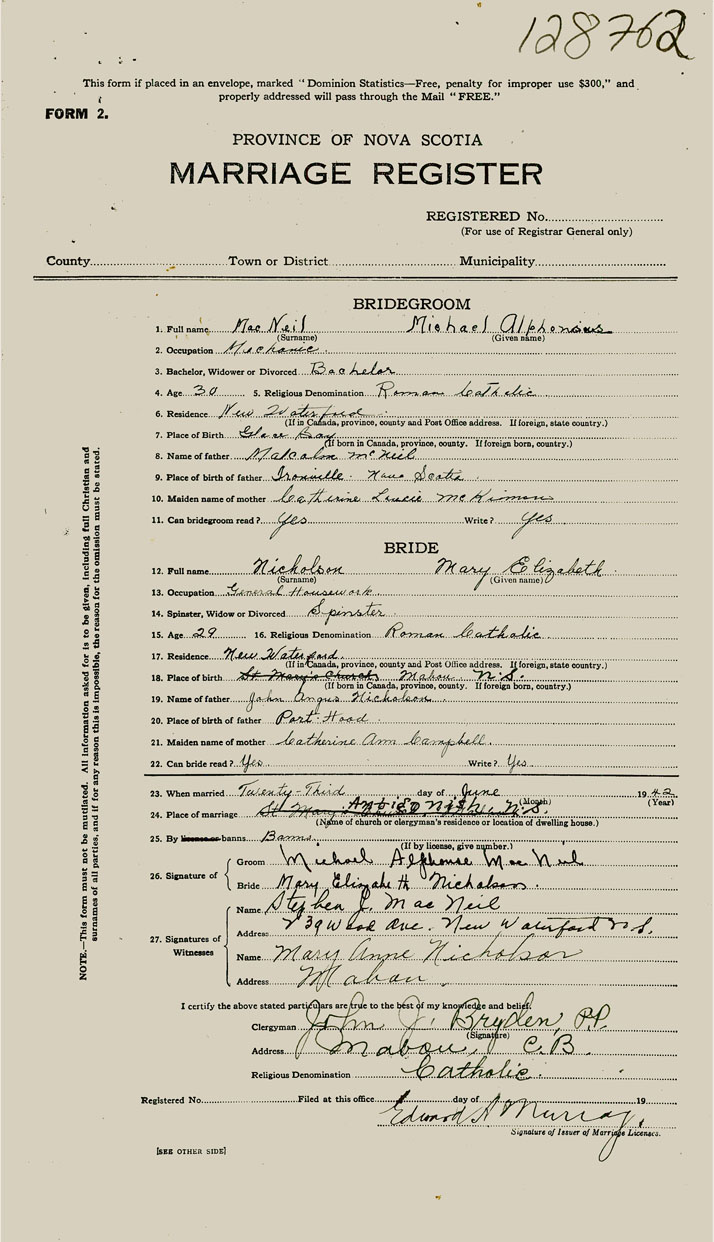 128762
This form if placed in an envelope, marked "Dominion Statistics—Free, penalty for improper use $300," and
properly addressed will pass through the Mail "FREE."
FORM 2.
PROVINCE OF NOVA SCOTIA
MARRIAGE REGISTER
REGISTERED No.
(For use of Registrar General only)
County Town or District Municipality
BRIDEGROOM
1. Full name Mac Neil Michael Alphonsus
(Surname) (Given name)
2. Occupation Mechanic
3. Bachelor, Widower or Divorced Bachelor
4. Age 30 5. Religious Denomination Roman Catholic
6. Residence New Waterford
(If in Canada, province, county and Post Office address. If foreign, state country.)
7. Place of Birth Glace Bay
(If born in Canada, province, county. If foreign born, country.)
8. Name of father Malcolm McNeil
9. Place of birth of father Ironville Nova Scotia
10. Maiden name of mother Catherine Lucie McKinnon
11. Can bridegroom read? Yes Write? Yes
BRIDE
12. Full name Nicholson Mary Elizabeth
(Surname) (Given name)
13. Occupation General Housework
14. Spinster, Widow or Divorced Spinster
15. Age 29 16. Religious Denomination Roman Catholic
17. Residence New Waterford
(If in Canada, province, county and Post Office address. If foreign, state country.)
18. Place of birth St Mary's Church Mabou N.S.
(If born in Canada, province, county. If foreign born, country.)
19. Name of father John Angus Nicholson
20. Place of birth of father Port-Hood
21. Maiden name of mother Catherine Ann Campbell
22. Can bride read? Yes Write? Yes
23. When married Twenty-Third day of June 1942
(Month) (Year)
24. Place of marriage St Mary N.S.
(Name of church or clergyman's residence or location of dwelling house.)
25. By license or banns Banns
(If by license, give number.)
26. Signature of
Groom Michael Alphonse Mac Neil
Bride Mary Elizabeth Nicholson.
27. Signatures of Witnesses
Name Stephen J. Mac Neil
Address 239 Wood Ave. New Waterford N.S.
Name Mary Anne Nicholson
Address Mabou.
I certify the above stated particulars are true to the best of my knowledge and belief.
Clergyman John J. Bryden, P.P.
(Signature)
Address Mabou, C.B.
Religious Denomination Catholic.
Registered No. Filed at this office day of 19
Edward A Murray,
Signature of Issuer of Marriage Licenses.
[SEE OTHER SIDE]
NOTE.—This form must not be mutilated. All information asked for is to be given, including full Christian and
surnames of all parties, and if for any reason this is impossible, the reason for the omission must be stated.